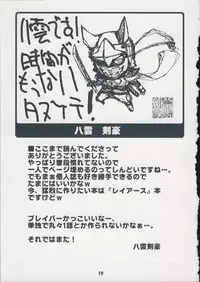 八雲です!
時間が
もうない
タスケテ!
八雲 剣豪
■ここまで読んでくださって
ありがとうございました。
やっぱり普段慣れてないので
一人でページ埋めるのってしんどいですね…。
でもまぁ個人誌も好き勝手できるので
たまにはいいかなw
今、猛烈に作りたい本は『レイアース』本
ですけどw
ブレイバーかっこいいなー、
単独で丸々1話とか作られないかなぁ…。
それではまた!
八雲剣豪
19